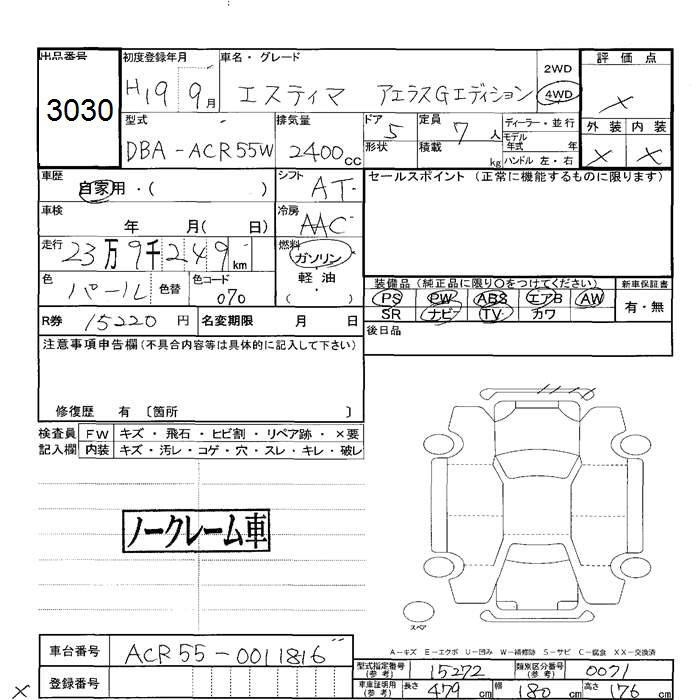 出品番号
3030
初度登録年月
H19 9月
車名・グレード
エスティマ アエラスGエディション
2WD
4WD
評価点
×
外装 内装
× ×
型式
DBA-ACR55W
排気量
2400cc
ドア 5
形状
定員 7人
積載 kg
ディーラー・並行
モデル年式 年
ハンドル 左・右
車歴
自家用・( )
シフト
AT
セールスポイント(正常に機能するものに限ります)
車検
年 月( 日)
冷房
AAC
走行
23万9千249km
燃料
ガソリン
軽油
( ・ )
色
パール
色替
色コード
070
装備品(純正品に限り○をつけてください)
PS PW ABS エアB AW
SR ナビ TV カワ
新車保証書
有・無
R券 15220円
名変期限 月 日
後日品
注意事項申告欄(不具合内容等は具体的に記入して下さい)
修復歴 有〔箇所 〕
検査員記入欄
FW キズ・飛石・ヒビ割・リペア跡・×要
内装 キズ・汚レ・コゲ・穴・スレ・キレ・破レ
ノークレーム車
スペア
A-キズ E-エクボ U-凹み W-補修跡 S-サビ C-腐食 XX-交換済
車台番号 ACR55-0011816
登録番号
型式指定番号(参考) 15272
類別区分番号(参考) 0071
車車証明用(参考) 長さ 479cm 幅 180cm 高さ 176cm
×